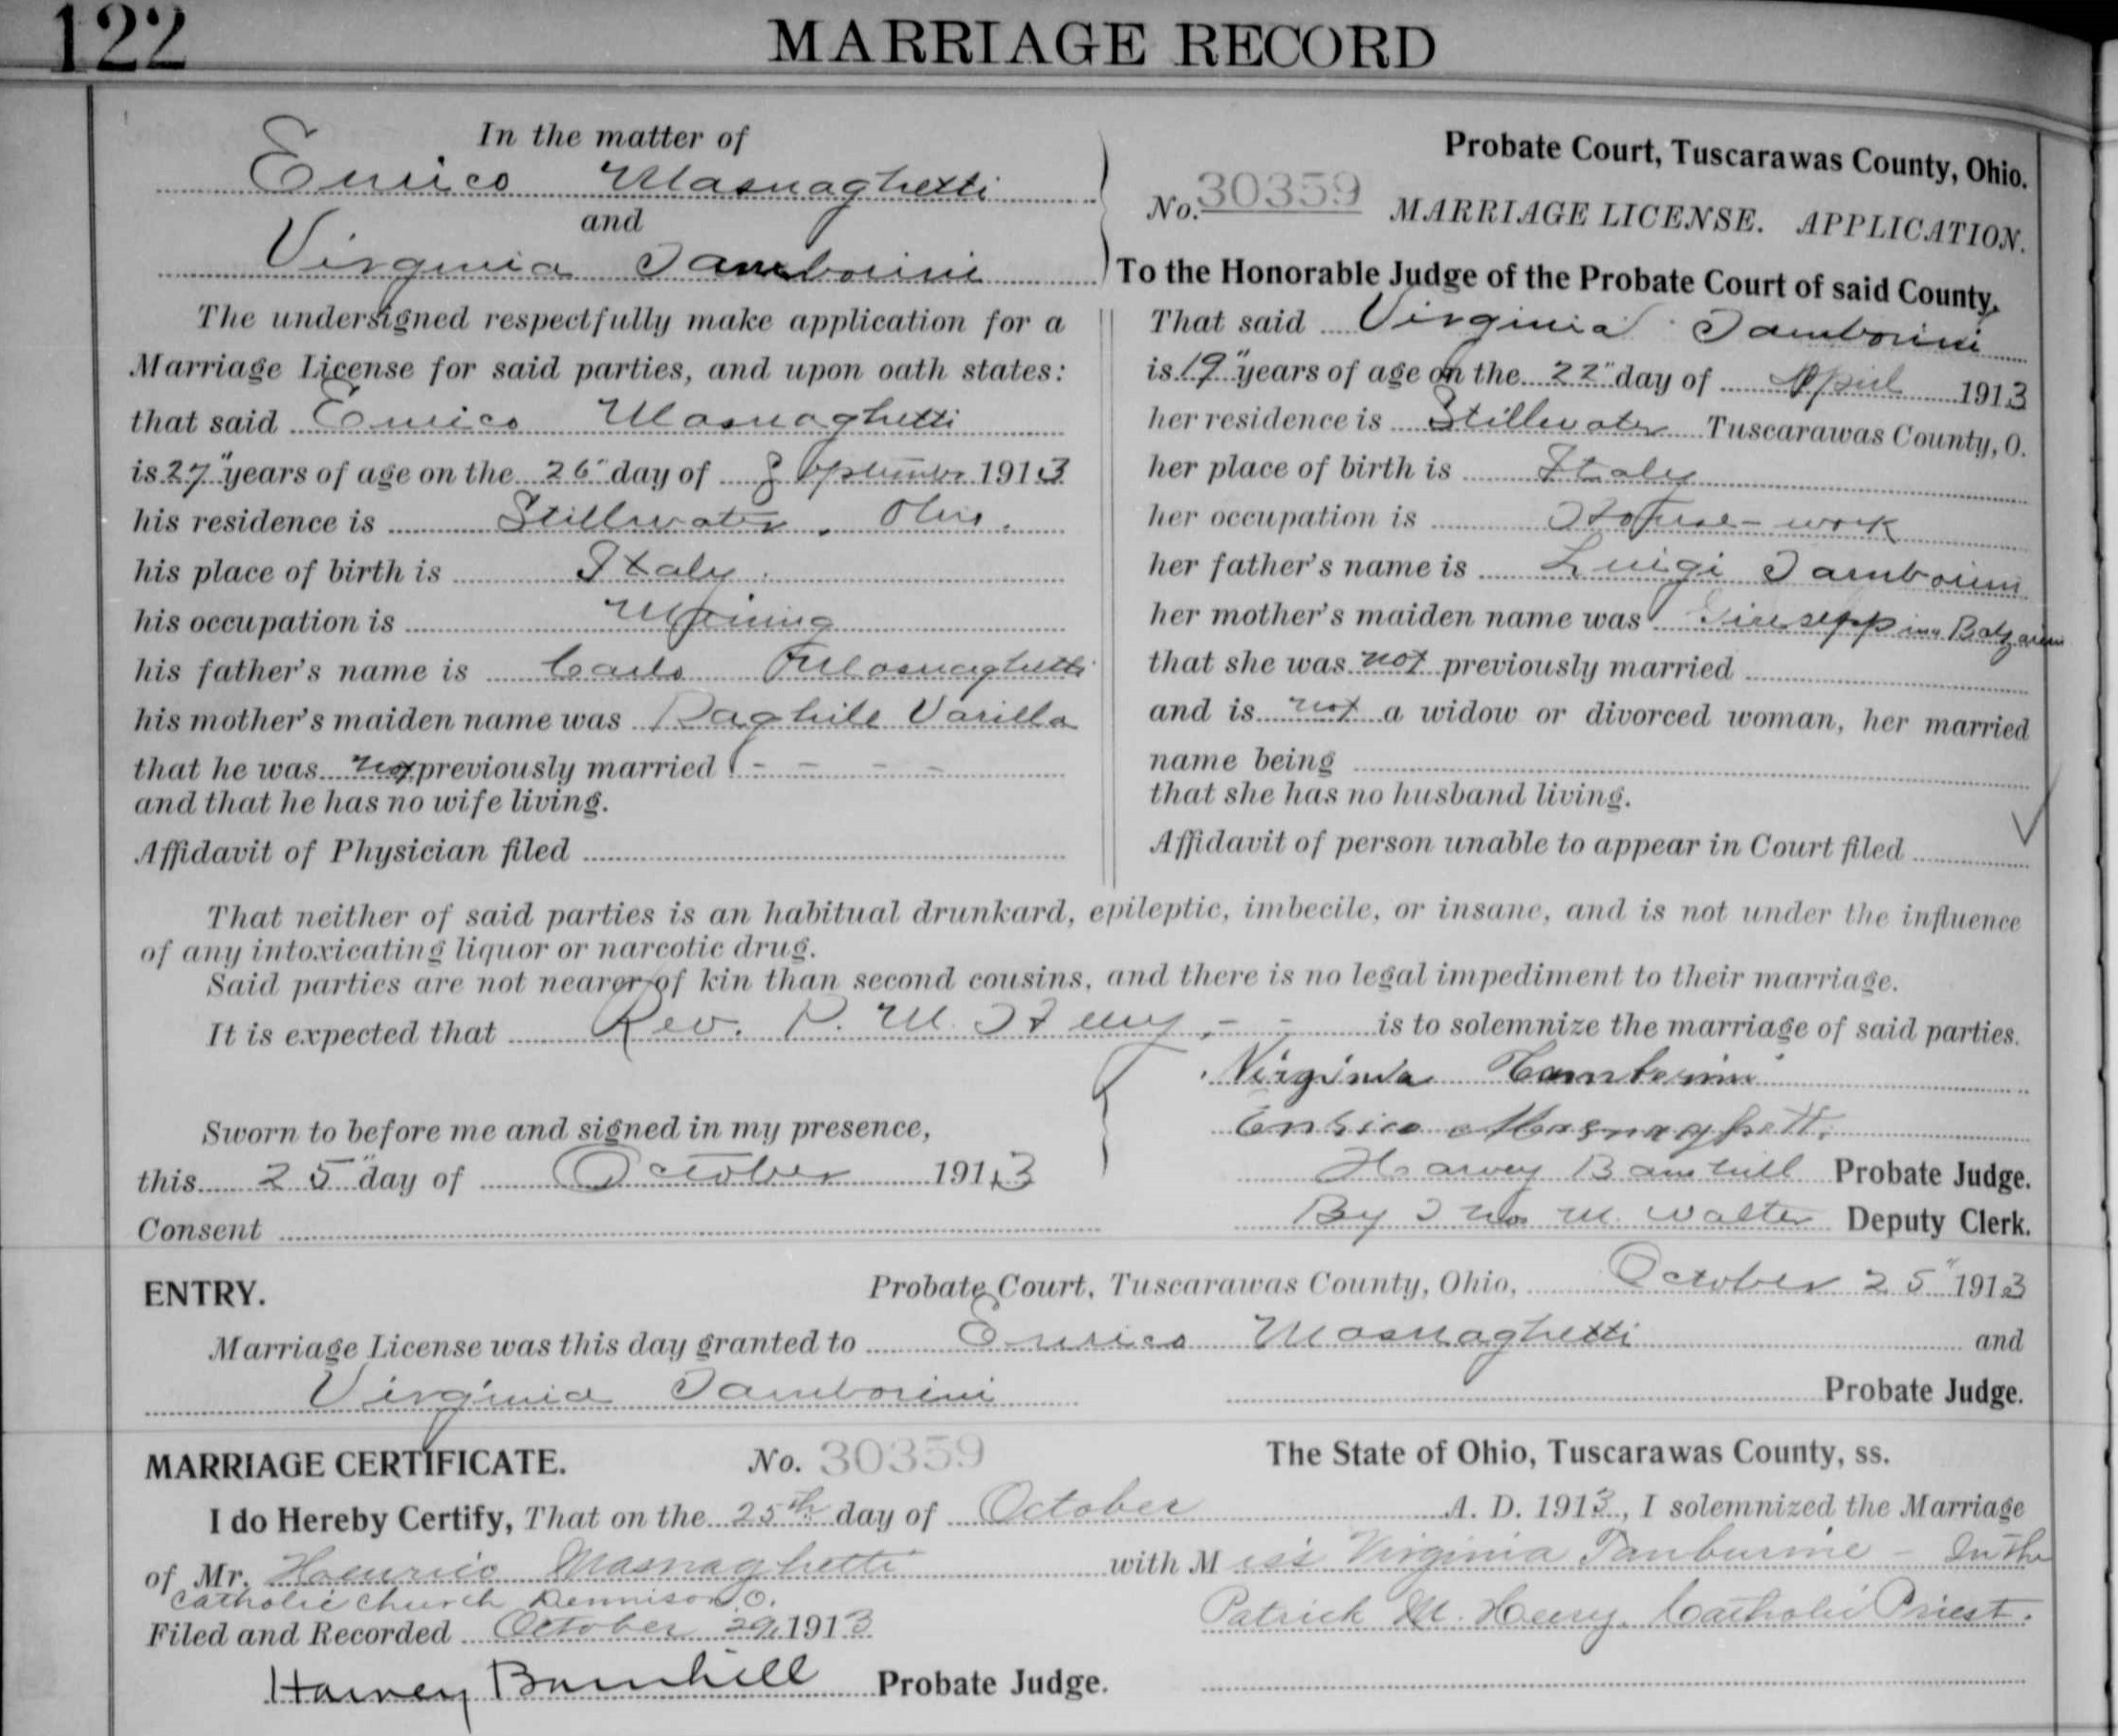 122
MARRIAGE RECORD
In the matter of
Enrico Masnaghetti
and
Virginia Tamborini
Probate Court, Tuscarawas County, Ohio.
No. 30359 MARRIAGE LICENSE. APPLICATION.
To the Honorable Judge of the Probate Court of said County.
The undersigned respectfully make application for a
Marriage License for said parties, and upon oath states:
that said Enrico Masnaghetti
is 27" years of age on the 26" day of September 1913
his residence is Stillwater, Ohio.
his place of birth is Italy.
his occupation is Mining
his father's name is Carlo Masnaghetti
his mother's maiden name was Raghile Varilla
that he was not previously married
and that he has no wife living.
Affidavit of Physician filed
That said Virginia Tamborini
is 19" years of age on the 22" day of April 1913
her residence is Stillwater Tuscarawas County, O.
her place of birth is Italy
her occupation is House-work
her father's name is Luigi Tamborini
her mother's maiden name was Balzarini
that she was not previously married
and is not a widow or divorced woman, her married
name being
that she has no husband living.
Affidavit of person unable to appear in Court filed
That neither of said parties is an habitual drunkard, epileptic, imbecile, or insane, and is not under the influence
of any intoxicating liquor or narcotic drug.
Said parties are not nearer of kin than second cousins, and there is no legal impediment to their marriage.
It is expected that Rev. P. M. Heny - - is to solemnize the marriage of said parties.
Virginia Tamborini
Enrico Masnaghetti
Sworn to before me and signed in my presence,
this 25" day of October 1913
Harvey Barnhill Probate Judge.
By Thos M. Walter Deputy Clerk.
Consent
ENTRY. Probate Court, Tuscarawas County, Ohio, October 25" 1913
Marriage License was this day granted to Enrico Masnaghetti and
Virginia Tamborini Probate Judge.
MARRIAGE CERTIFICATE. No. 30359 The State of Ohio, Tuscarawas County, ss.
I do Hereby Certify, That on the 25th day of October A. D. 1913, I solemnized the Marriage
of Mr. Henrico Masnaghetti with Miss Virginia Tanburine - In the
Catholic Church Dennison O.
Patrick M. Heery. Catholic Priest.
Filed and Recorded October 29, 1913
Harvey Barnhill Probate Judge.